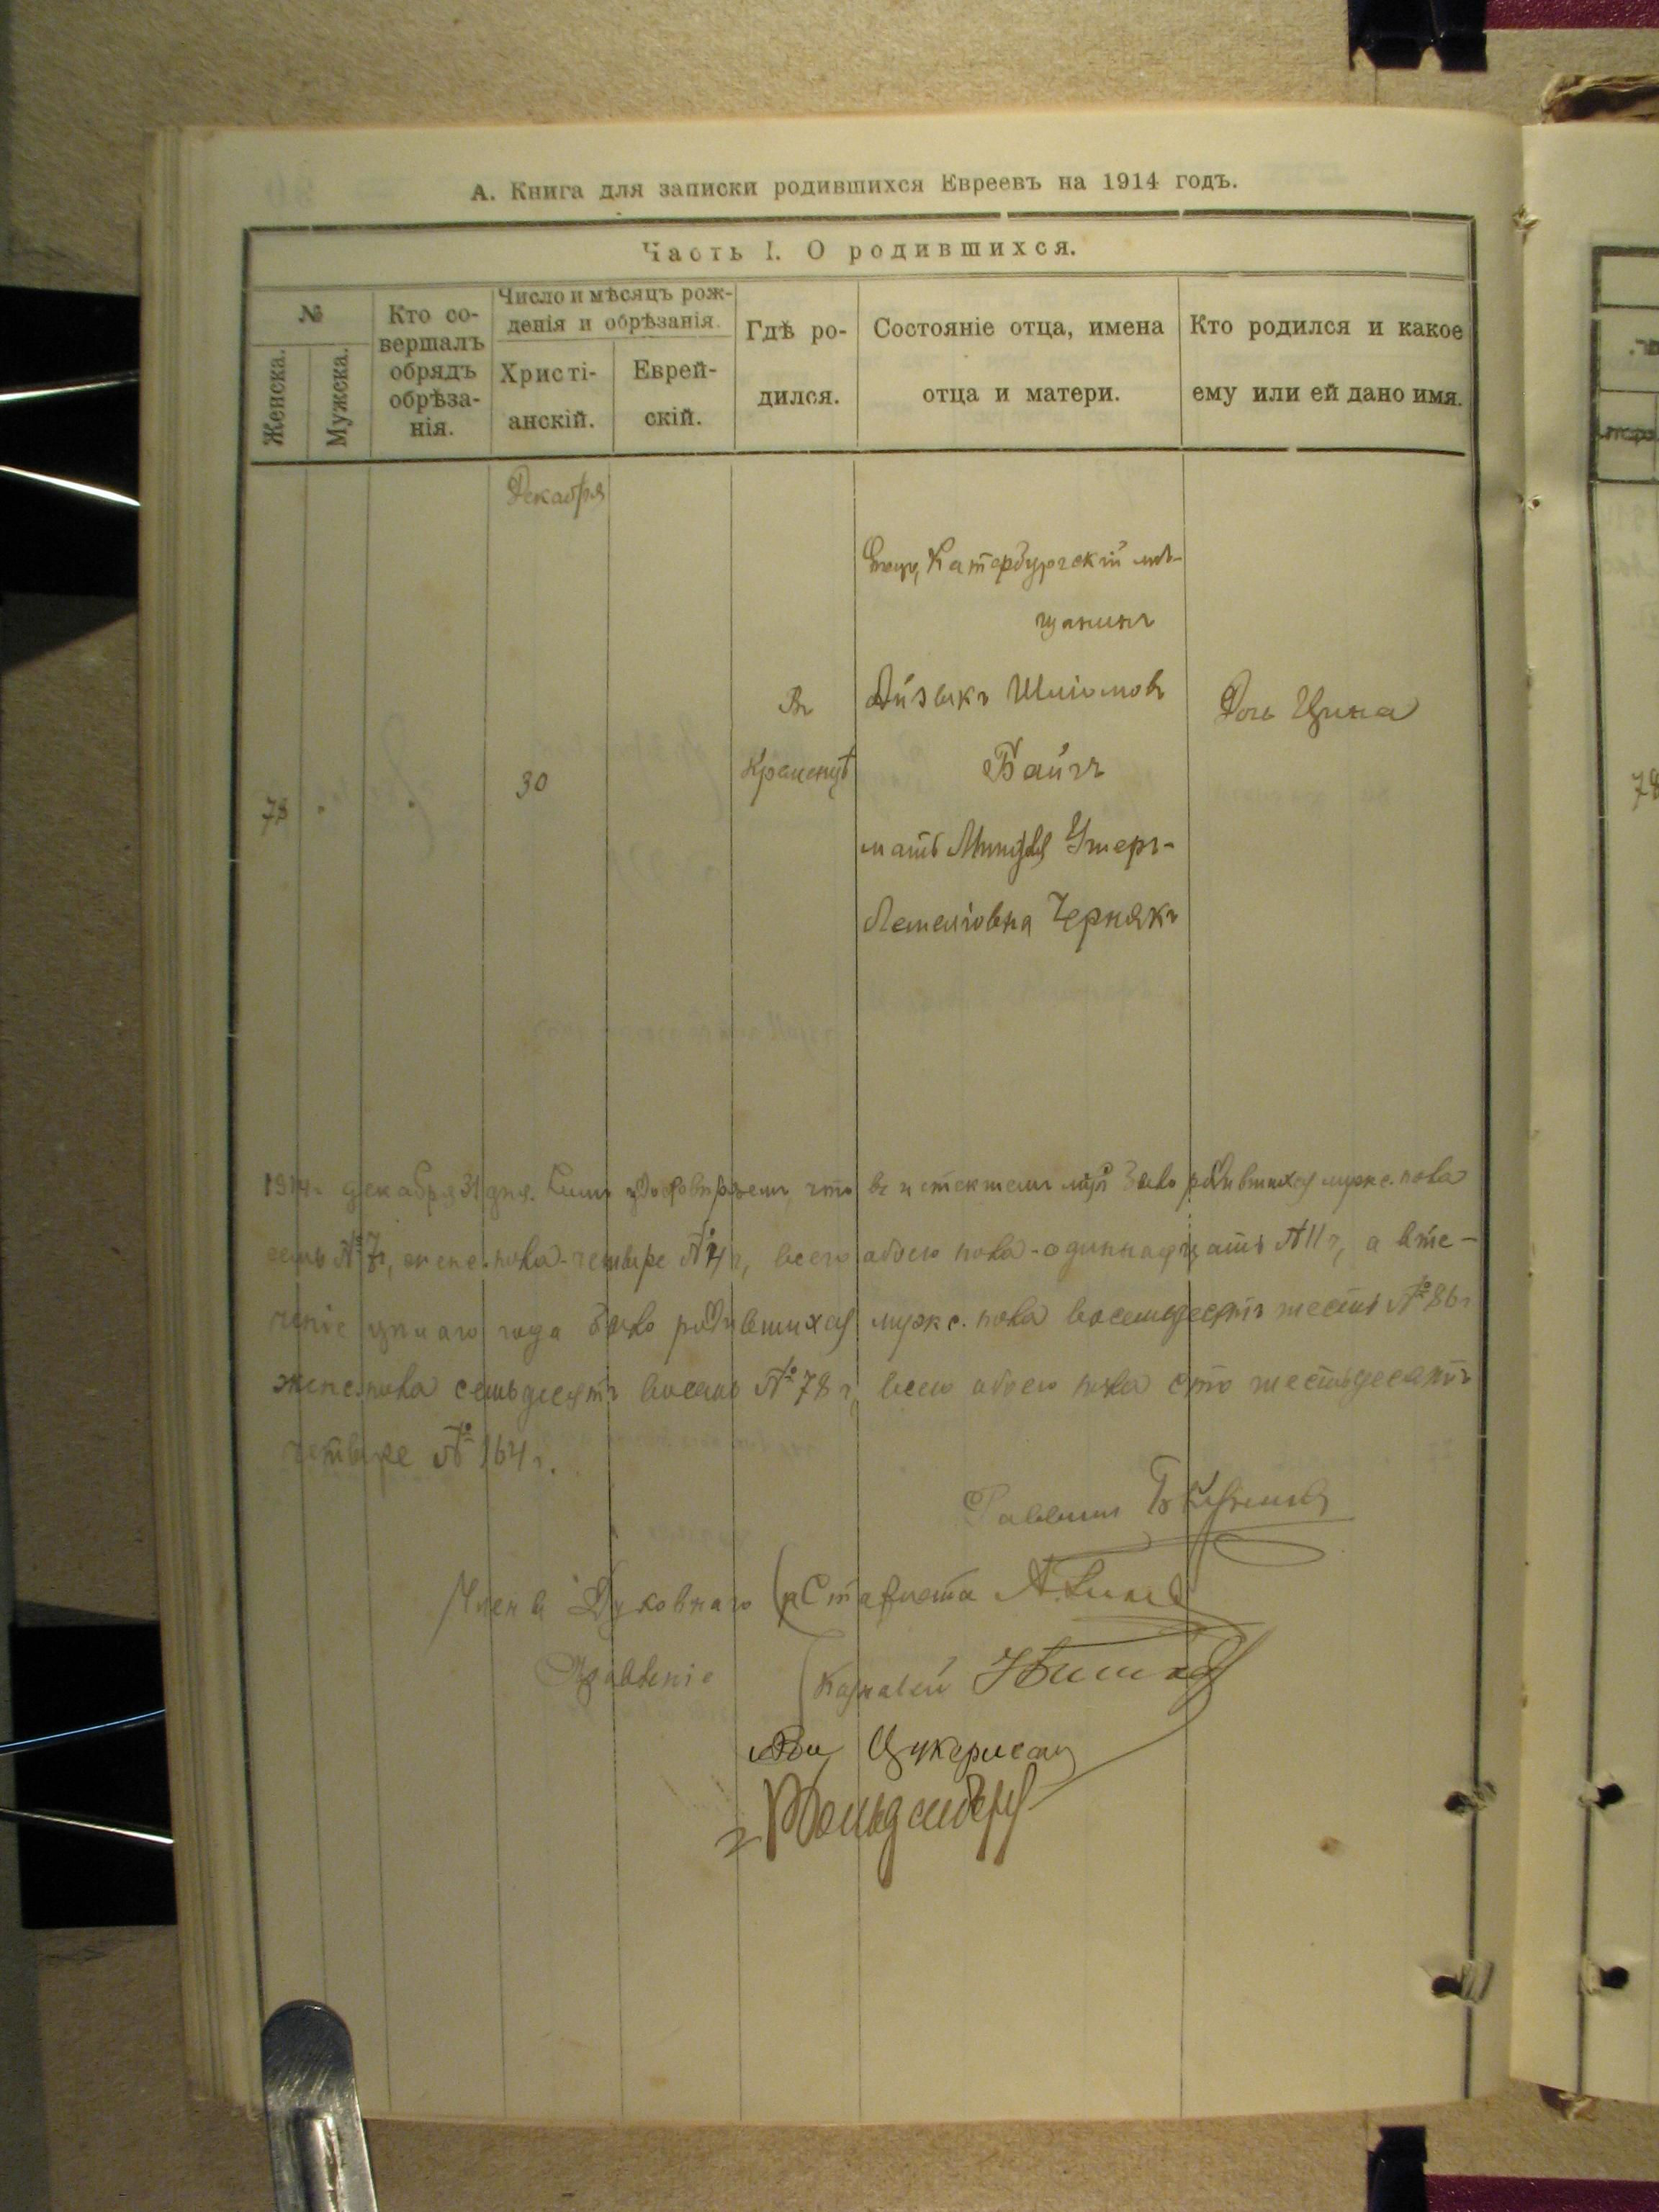 А. Книга для записки родившихся Евреевъ на 1914 годъ.
Часть I. О родившихся.
№
Женска.
Мужска.
Кто со-
вершалъ
обрядъ
обрѣза-
нія.
Число и мѣсяцъ рож-
денія и обрѣзанія.
Христі-
анскій.
Еврей-
скій.
Гдѣ ро-
дился.
Состояніе отца, имена
отца и матери.
Кто родился и какое
ему или ей дано имя.
Декабря
78
30
Въ
Кременцѣ
Катербургскій мѣ-
щанинъ
Айзыкъ Шліомовъ
Байгъ
мать
Черняkъ
Дочь Цына
78
1914 г. декабря 31 дня. Симъ удостовѣряемъ, что въ истекшемъ родившихся мужс. пола
семь № 7, женс. пола - четыре № 4, всего обоего пола - одиннадцать № 11, а въ те-
ченіе цѣлаго года было родившихся мужс. пола восемьдесятъ шесть № 86
женс. пола семьдесятъ восемь № 78, всего обоего пола сто шестьдесятъ
четыре № 164.
Раввинъ
Члены Духовнаго Староста
Правленія Казначей
Цукерман